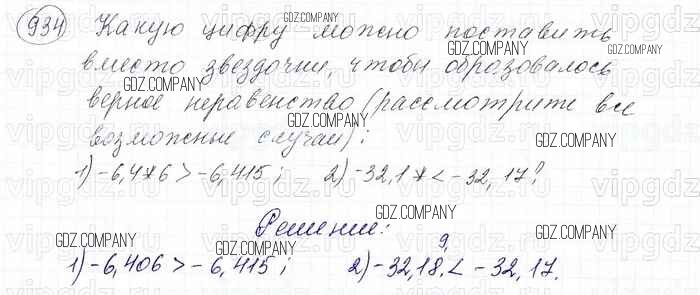 934 Какую цифру можно поставить
вместо звездочки, чтобы образовалось
верное неравенство (рассмотрите все
возможные случаи):
1) -6,4*6 > -6,415; 2) -32,1* < -32,17?
Решение:
9.
1) -6,406 > -6,415; 2) -32,18. < -32,17.
GDZ.COMPANY
vipgdz.ru